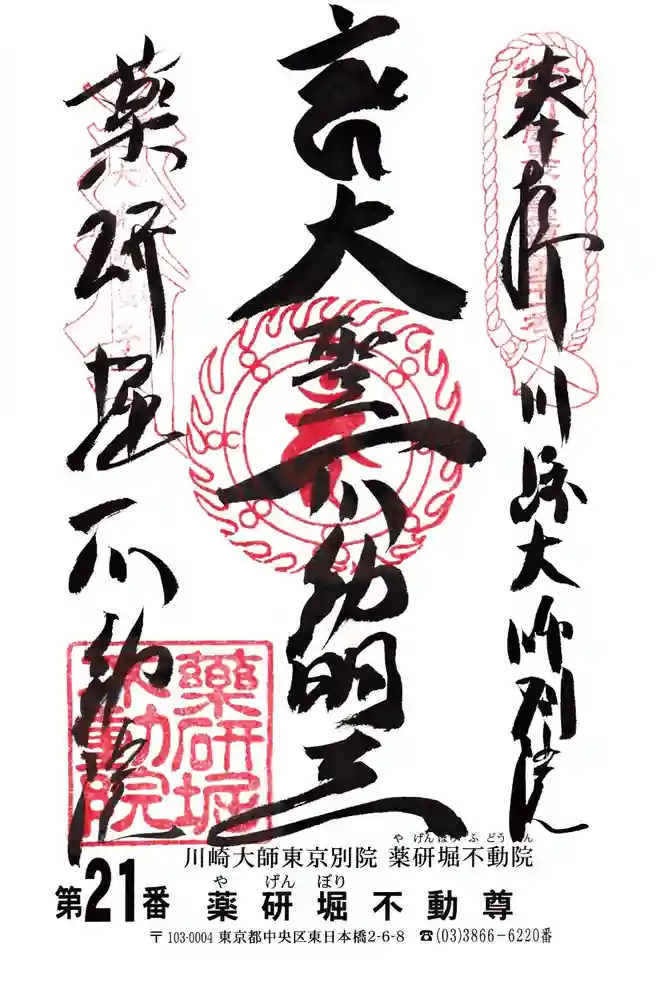 奉拝 川崎大師別院
高大聖不動明王
薬研堀不動院
薬研堀
不動院
川崎大師東京別院 薬研堀不動院
や げんぼり ふ どう いん
や げん ぼり
第21番 薬研堀不動尊
〒103-0004 東京都中央区東日本橋2-6-8 ☎(03)3866-6220番